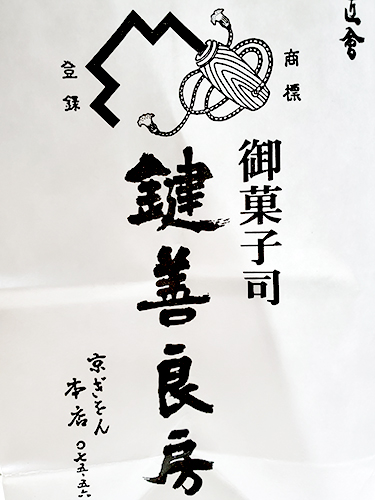 登録
商標
御菓子司
鍵善良房
京ぎをん
本店
〇七五・五六